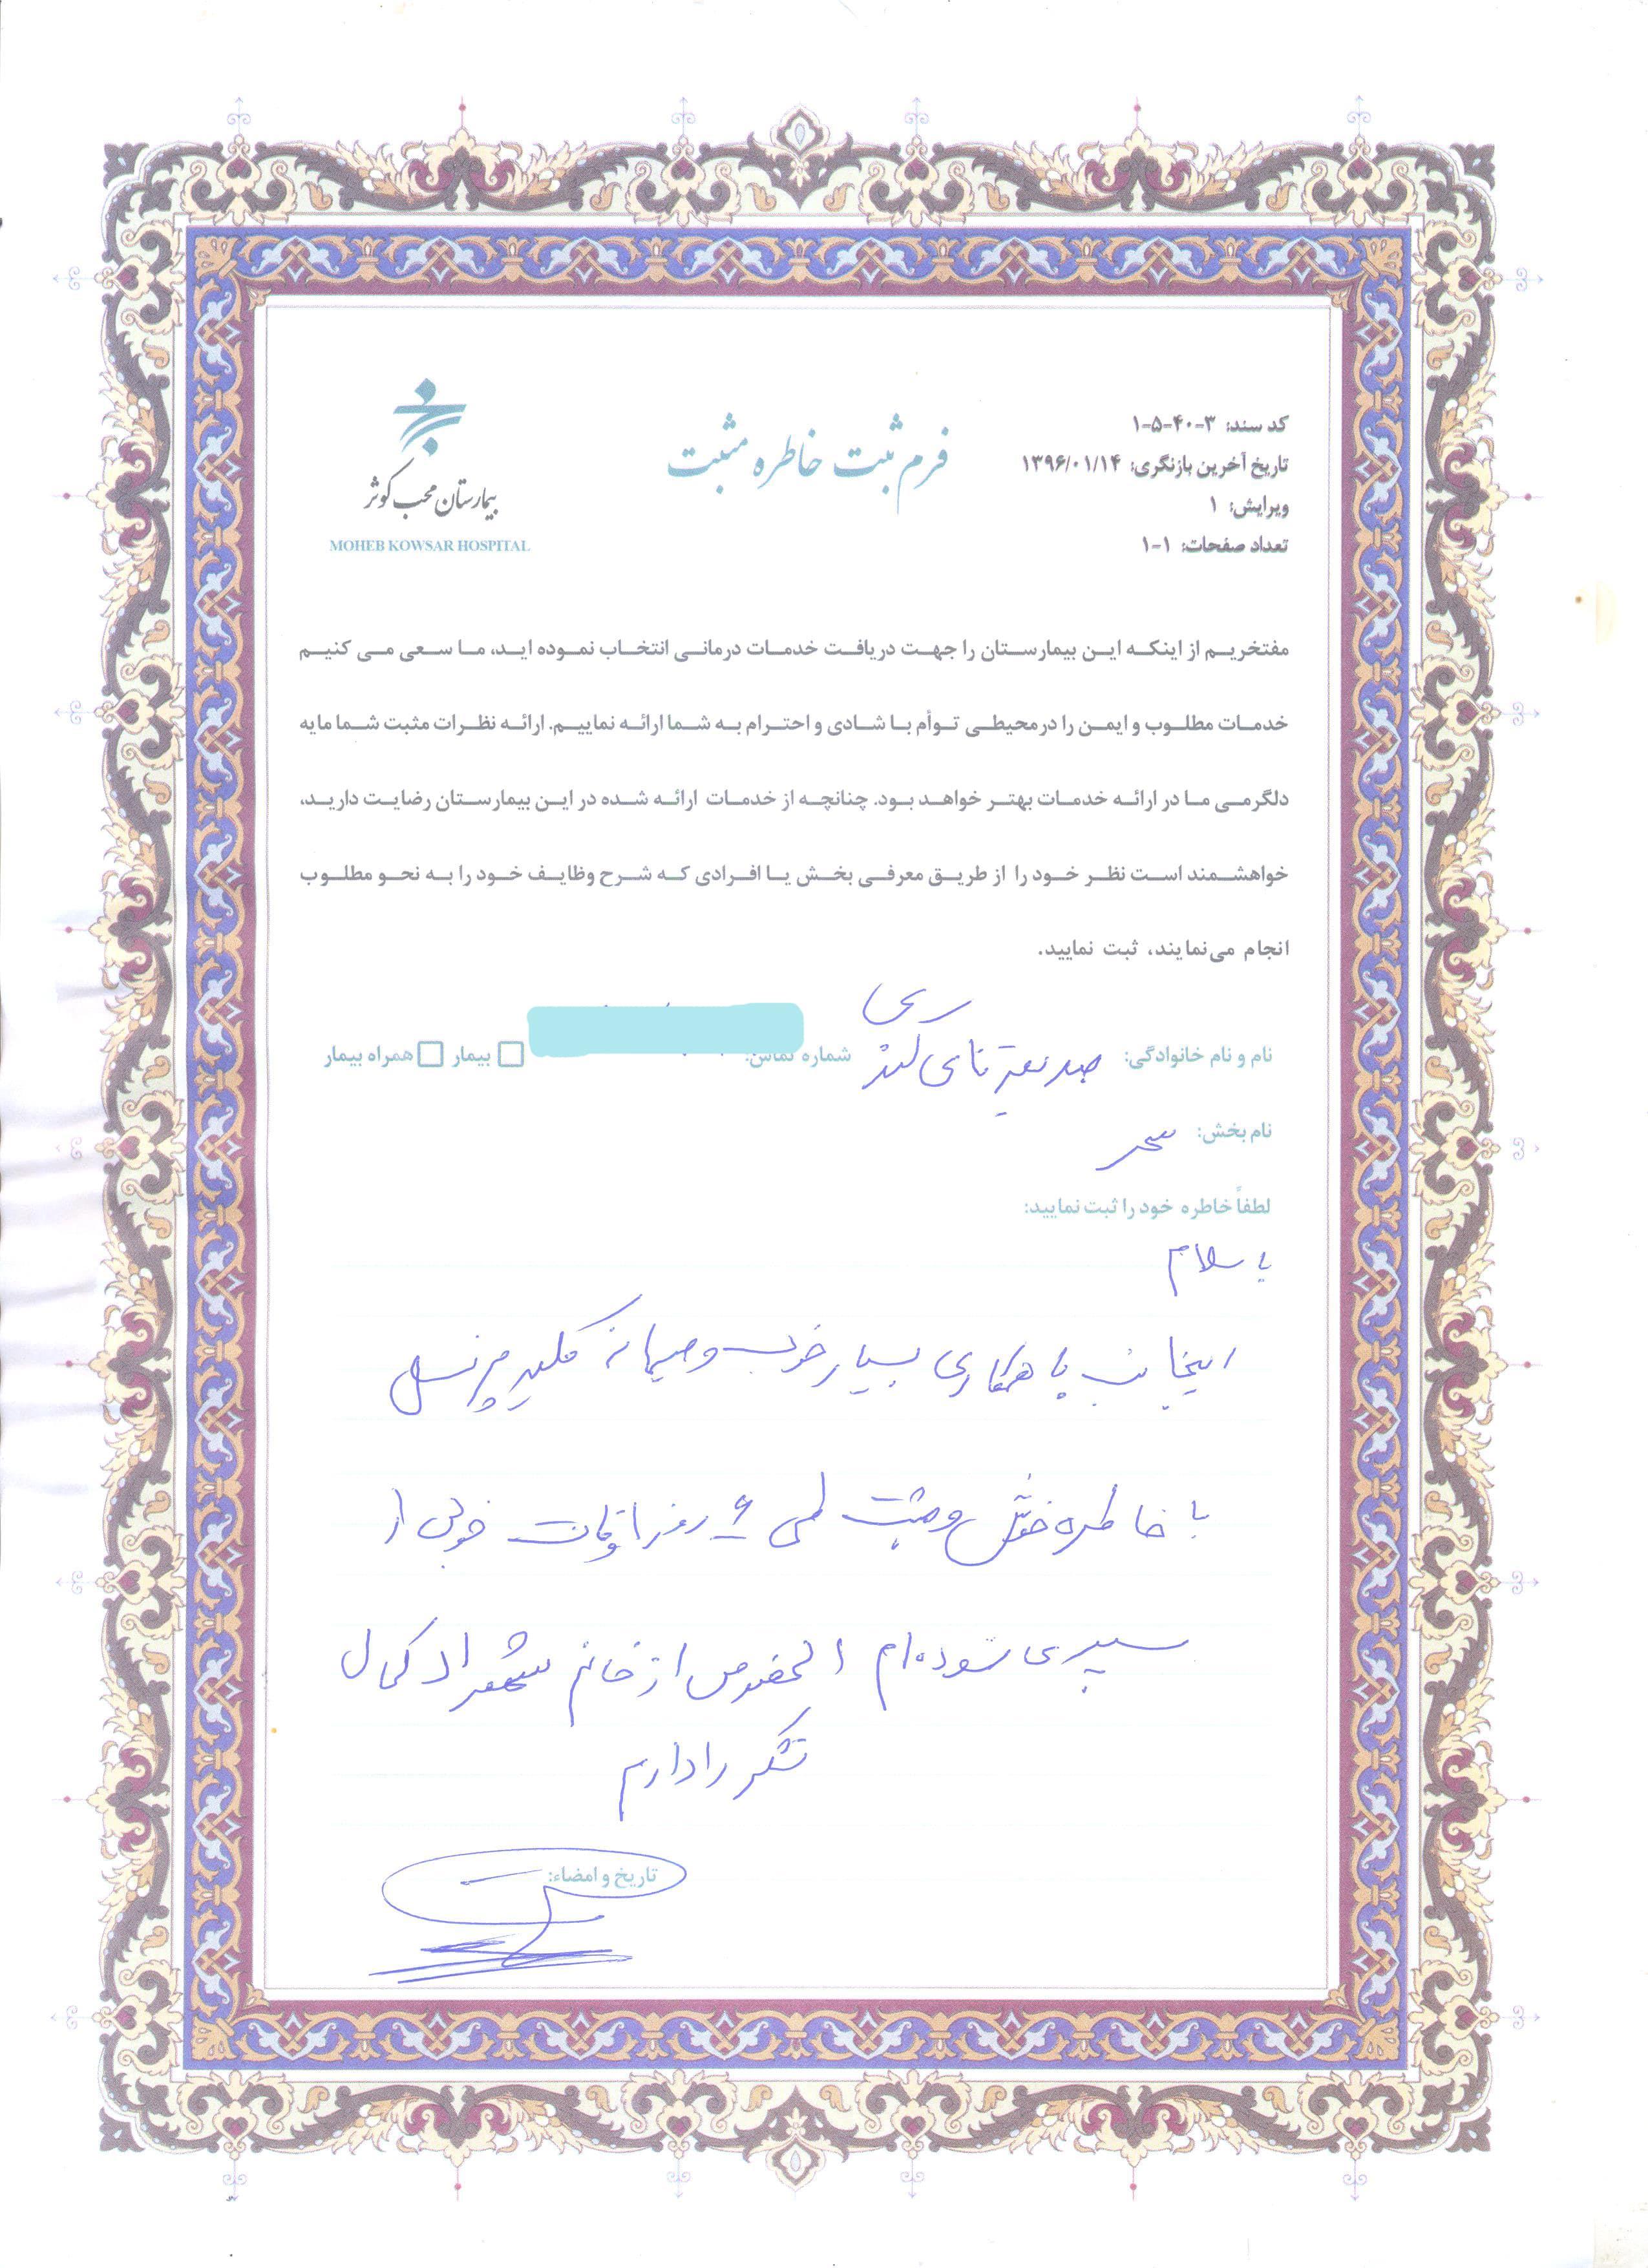 کد سند: ۳-۴۰-۵-۱
تاریخ آخرین بازنگری: ۱۳۹۶/۰۱/۱۴
ویرایش: ۱
تعداد صفحات: ۱-۱
فرم ثبت خاطره مثبت
بیمارستان محب کوثر
MOHEB KOWSAR HOSPITAL
مفتخریم از اینکه این بیمارستان را جهت دریافت خدمات درمانی انتخاب نموده اید، ما سعی می کنیم
خدمات مطلوب و ایمن را در محیطی توأم با شادی و احترام به شما ارائه نماییم. ارائه نظرات مثبت شما مایه
دلگرمی ما در ارائه خدمات بهتر خواهد بود. چنانچه از خدمات ارائه شده در این بیمارستان رضایت دارید،
خواهشمند است نظر خود را از طریق معرفی بخش یا افرادی که شرح وظایف خود را به نحو مطلوب
انجام می‌نمایند، ثبت نمایید.
نام و نام خانوادگی: شماره تماس: بیمار همراه بیمار
نام بخش: سحر
لطفاً خاطره خود را ثبت نمایید:
با سلام
اینجانب با همکاری بسیار خوب و صمیمانه کلیه پرنسل
با خاطره خوش و مثبت طی ۶ روز اوقات خوبی را
سپری نموده‌ام الخصوص از خانم کمال
تشکر را دارم
تاریخ و امضاء: